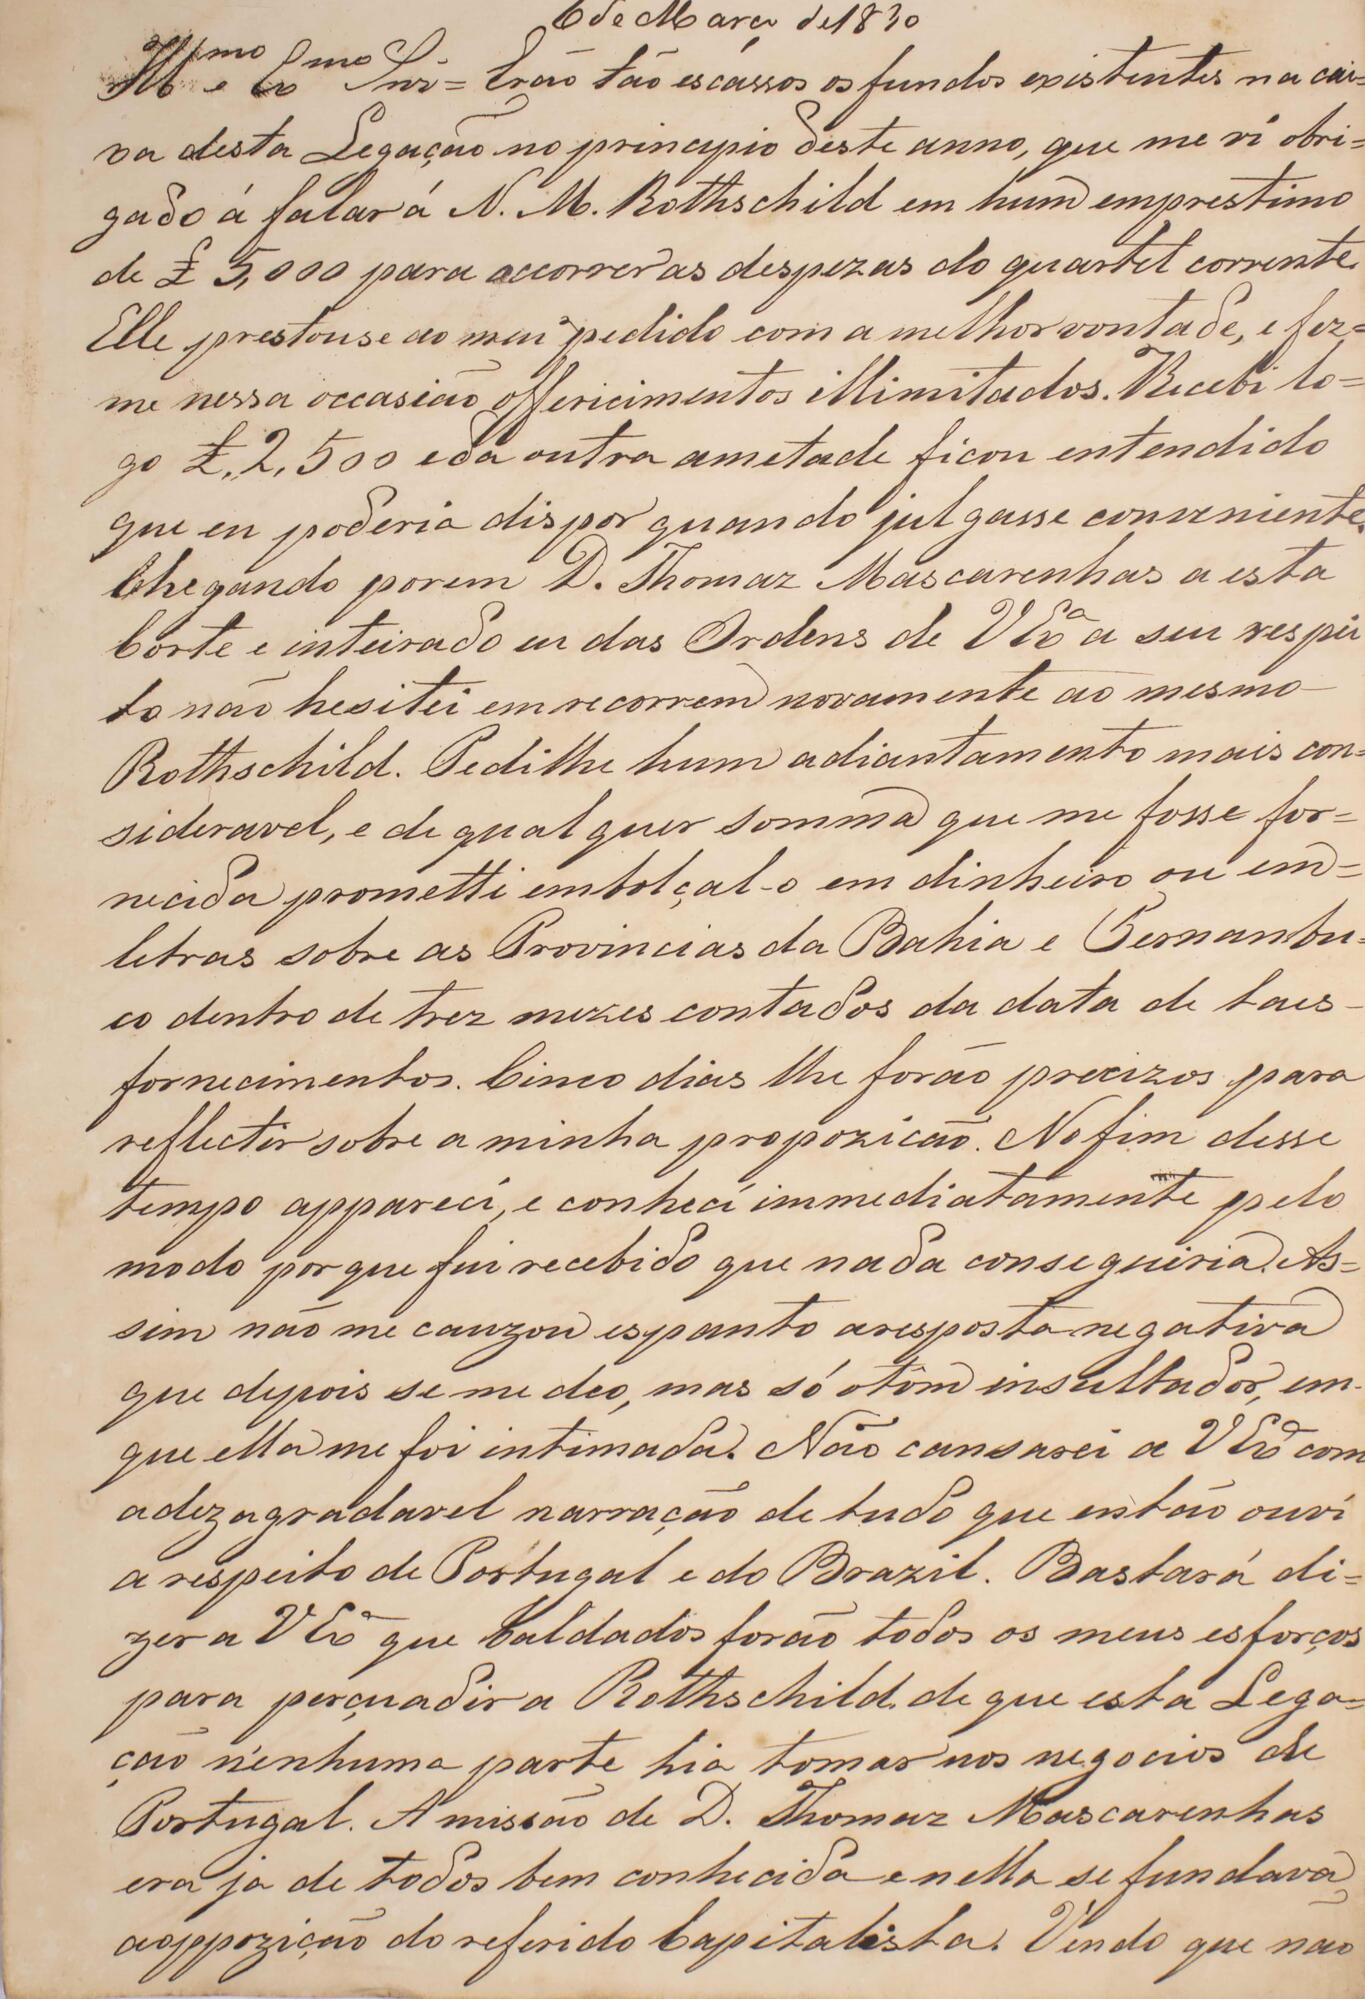 6 de Março de 1830
Ill.mo e Ex.mo Snr = Erão tão escássos os fundos existentes na cai=
xa desta Legação no principio deste anno, que me vi obri=
gado á falar á N. M. Rothschild em hum emprestimo
de £ 5,000 para accorrer as despezas do quartel corrente.
Elle prestouse ao meu pedido com a melhor vontade, e fez=
me nessa occasião offericimentos illimitados. Recebi lo=
go £, 2,500 e da outra ametade ficou entendido
que eu poderia dispor quando julgasse conveniente.
Chegando porem D. Thomaz Mascarenhas a esta
Corte e inteirado eu das Ordens de V Exª a seu respei
to não hesitei em recorrem novamente ao mesmo
Rothschild. Pedilhe hum adiantamento mais con=
sideravel, e de qualquer somma que me fosse for=
necida prometti embolçal-o em dinheiro ou em=
letras sobre as Provincias da Bahia e Pernambu=
co dentro de trez mezes contados da data de taes
fornecimentos. Cinco dias lhe forão precizos para
reflectir sobre a minha propozicão. No fim desse
tempo apparecí, e conhecí immediatamente pelo
modo porque fui recebido que nada conseguiria. As=
sim não me cauzou espanto a resposta negativa
que depois se me deo, mas só o tôm insultador, em
que ella me foi intimada. Não cansarei a V Exª com
a dezagradavel narração de tudo que então ouví
a respeito de Portugal e do Brazil. Bastará di=
zer a V Exª que baldados forão todos os meus esforços
para perçuadir a Rothschild de que esta Lega=
ção nenhuma parte hia tomar nos negocios de
Portugal. A missão de D. Thomaz Mascarenhas
era ja de todos bem conhecida e nella se fundava
a oppozição do referido Capitalista. Vendo que não